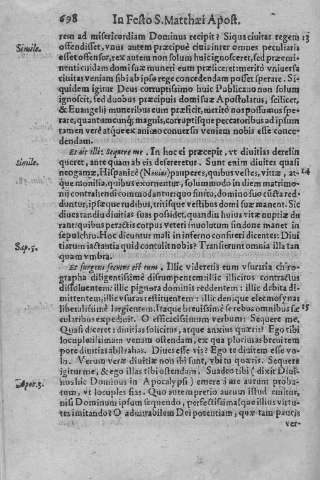 698 In Festo S. Matthæi Apost.
rem ad misericordiam Dominus recipit? Siquis ciuitas regem 13
Simile. offendisset, vnus autem præcipuè ciuis inter omnes peculiaria
esset offensor, & ex autem non solum huic ignosceret, sed præmi-
nenti cuidam domi suæ muneri eum præficeret: meritò vniuersa
ciuitas veniam sibi ab ipso rege concedendam posset sperare. Si-
quidem igitur Deus corruptissimo huic Publicano non solum
ignoscit, sed duobus præcipuis domi suæ Apostolatus, scilicet,
& Euangelij muneribus eum præficit, meritò nos possumus spe-
rare, quantumcunque magnis, corruptisque peccatoribus ad ipsum
tamen verè atque ex animo conuersis veniam nobis esse conce-
dendam.
Et ait illi: Sequere me. In hoc ei præcepit, vt diuitias derelin
Simile. queret, ante quam ab eis desereretur. Sunt enim diuites quasi
neogamæ, Hispanicè (Nouias) pauperes, quibus vestes, vittæ, at- 14
que monilia, quibus exornentur, solummodo in diem matrimo-
nij contrahendi commodantur, quo finito, domino suo cuncta red-
duntur, ipsæque rudibus, tritisque vestibus domi suæ manent. Sic
diues tandiu diuitias suas possidet, quandiu huius vitæ nuptiæ du
rant: quibus peractis corpus veteri inuolutum sindone manet in
sepulchro. Hoc dicuntur mali in inferno confiteri dicentes: Diui
Sap. 5. tiarum iactantia quid contulit nobis? Transierunt omnia illa tan
quam vmbra.
Et surgens secutus est eum. Illic videretis eum vsuraria chiro-
grapha diligentissimè disrumpentem: illic illicitos contractus
dissoluentem: illic pignora dominis reddentem: illic debita di-
mittentem, illic vsuras restituentem: illic denique eleemosynas
liberalissimè largientem. Itaque breuissimè è rebus omnibus sæ 15
cularibus expediuit. O efficacissimum verbum: Sequere me.
Quasi diceret: diuitias solicitus, atque anxius quæris? Ego tibi
locupletissimam venam ostendam, ex qua plurimas breui tem
pore diuitias abstrahas. Diues esse vis? Ego te diuitem esse vo-
lo. Verum veræ diuitiæ non ibi sunt, vbi tu quæris. Sequere
igitur me, & ego illas tibi ostendam. Suadeo tibi (dixit Diui-
Apoc. 3. nus hic Dominus in Apocalypsi) emere à me aurum proba-
tum, vt locuples fias. Quo autem pretio aurum istud emitur,
nisi Dominum ipsum sequendo, perfectissimasque illius virtu-
tes imitando? O admirabilem Dei potentiam, quæ tam paucis
ver-